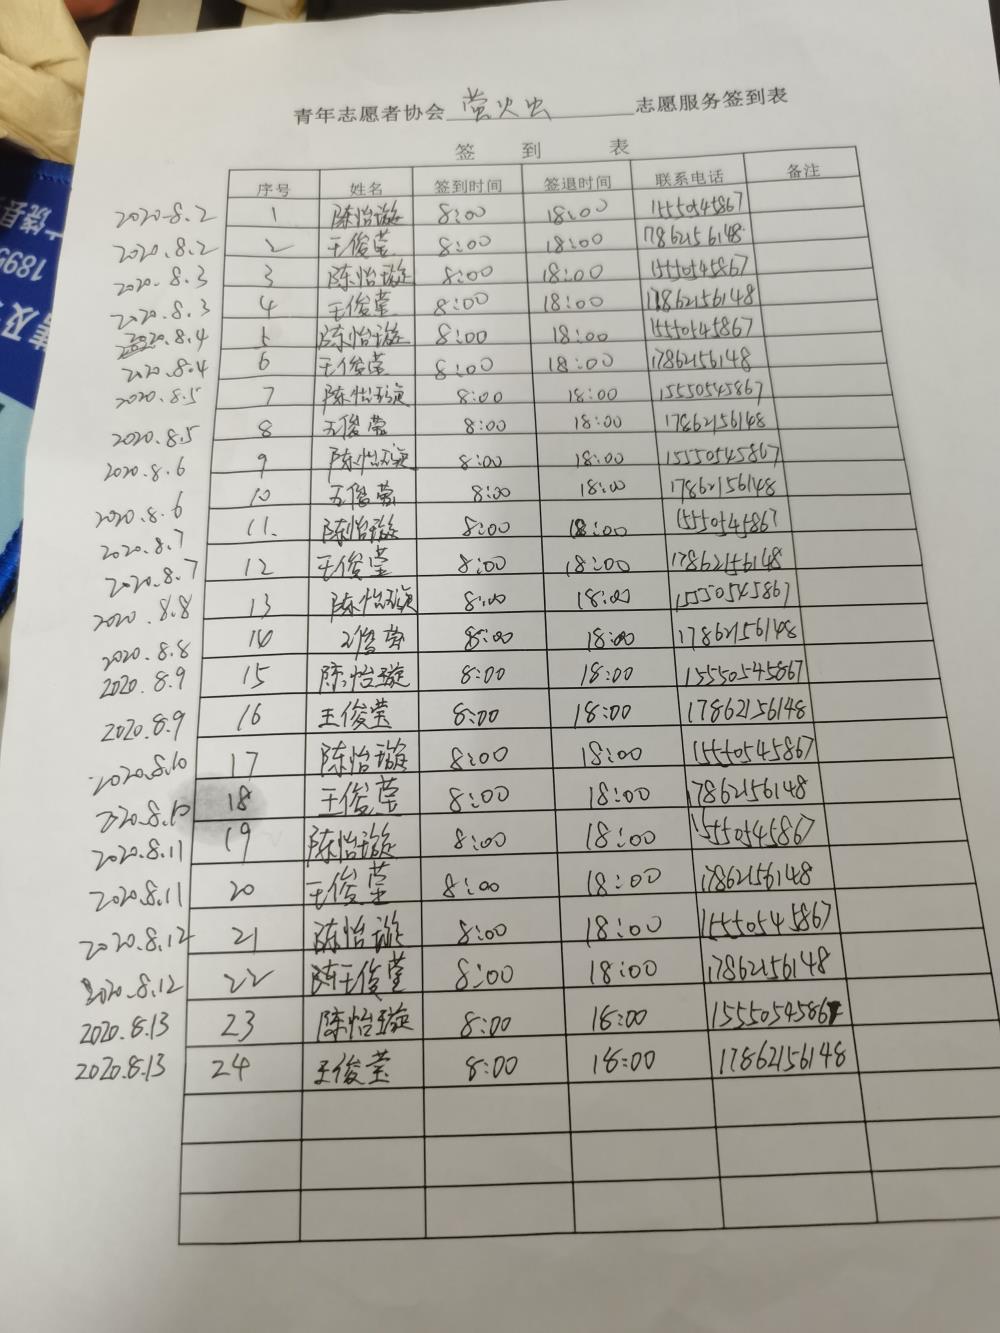 青年志愿者协会 萤火虫 志愿服务签到表
签 到 表
序号 姓名 签到时间 签退时间 联系电话 备注
2020.8.2 1 陈怡璇 8:00 18:00 15550545867
2020.8.2 2 王俊莹 8:00 18:00 17862156148
2020.8.3 3 陈怡璇 8:00 18:00 15550545867
2020.8.3 4 王俊莹 8:00 18:00 17862156148
2020.8.4 5 陈怡璇 8:00 18:00 15550545867
2020.8.4 6 王俊莹 8:00 18:00 17862156148
2020.8.5 7 陈怡璇 8:00 18:00 15550545867
2020.8.5 8 王俊莹 8:00 18:00 17862156148
2020.8.6 9 陈怡璇 8:00 18:00 15550545867
2020.8.6 10 王俊莹 8:00 18:00 17862156148
2020.8.7 11. 陈怡璇 8:00 18:00 15550545867
2020.8.7 12 王俊莹 8:00 18:00 17862156148
2020.8.8 13 陈怡璇 8:00 18:00 15550545867
2020.8.8 14 王俊莹 8:00 18:00 17862156148
2020.8.9 15 陈怡璇 8:00 18:00 15550545867
2020.8.9 16 王俊莹 8:00 18:00 17862156148
2020.8.10 17 陈怡璇 8:00 18:00 15550545867
2020.8.10 18 王俊莹 8:00 18:00 17862156148
2020.8.11 19 陈怡璇 8:00 18:00 15550545867
2020.8.11 20 王俊莹 8:00 18:00 17862156148
2020.8.12 21 陈怡璇 8:00 18:00 15550545867
2020.8.12 22 陈王俊莹 8:00 18:00 17862156148
2020.8.13 23 陈怡璇 8:00 18:00 15550545867
2020.8.13 24 王俊莹 8:00 18:00 17862156148
广饶县
1895